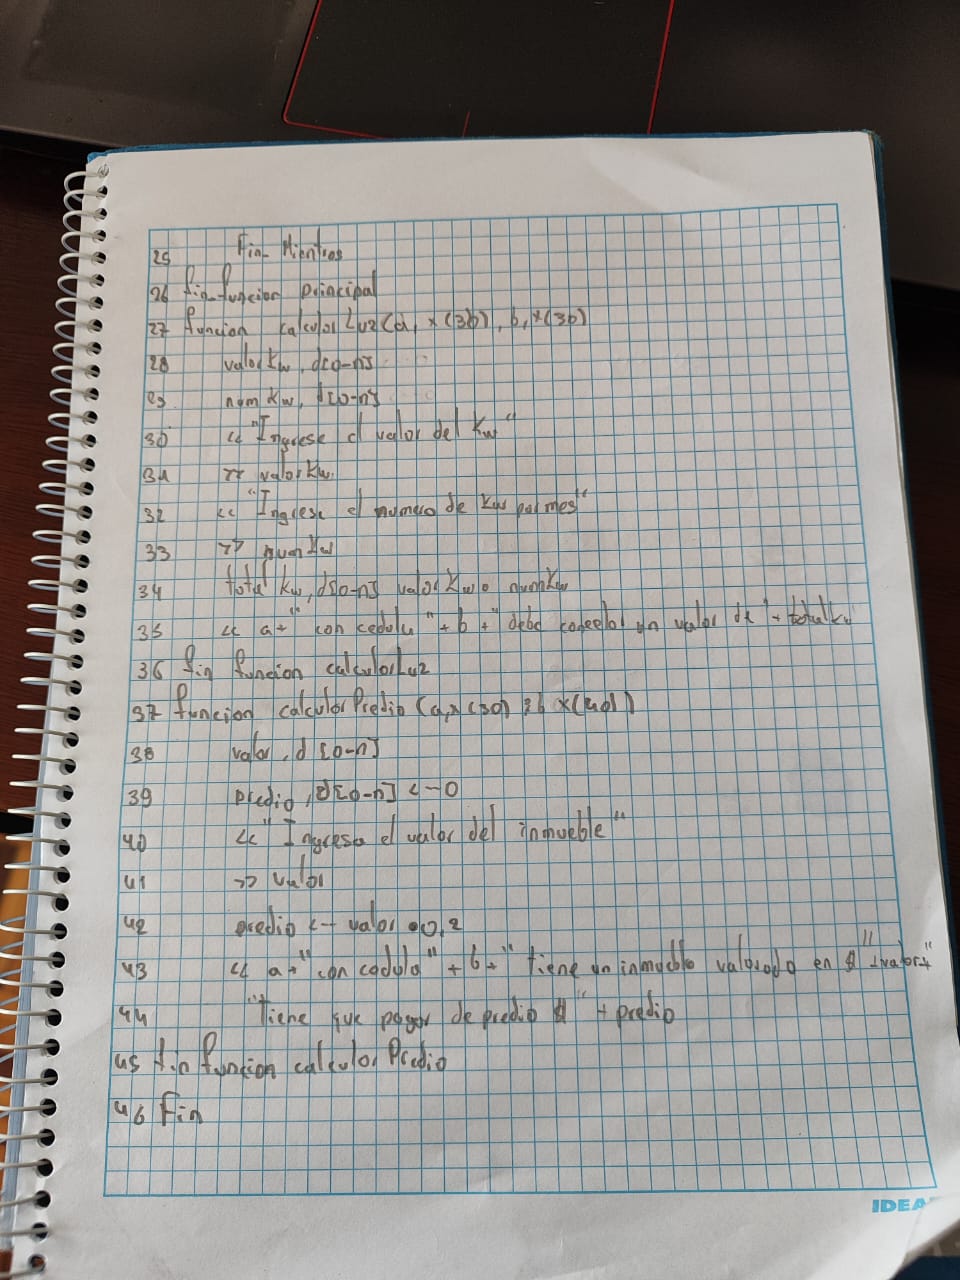 25 Fin- Mientras
26 fin-funcion principal
27 funcion calcularLuz(a, x(30), b, x(30)
28 valorkw, d[0-n]
29 numkw, d[0-n]
30 << "Ingrese el valor del kw"
31 >> valorkw
32 << "Ingrese el numero de kw por mes"
33 >> numkw
34 totalkw, d[0-n] valorkw numkw
35 << a+ " con cedula "+ b + " debe cancelar un valor de "+ totalkw
36 fin funcion calcularLuz
37 funcion calcularPredio (a,x(30) b x( ))
38 valor, d [0-n]
39 predio, d[0-n] <-0
40 << "Ingrese el valor del inmueble"
41 >> valor
42 predio <- valor •0,2
43 << a+"con cedula" + b+ "tiene un inmueble valorado en $" +valor+
44 "tiene que pagar de predio $" + predio
45 fin funcion calcular Predio
46 Fin
IDEA